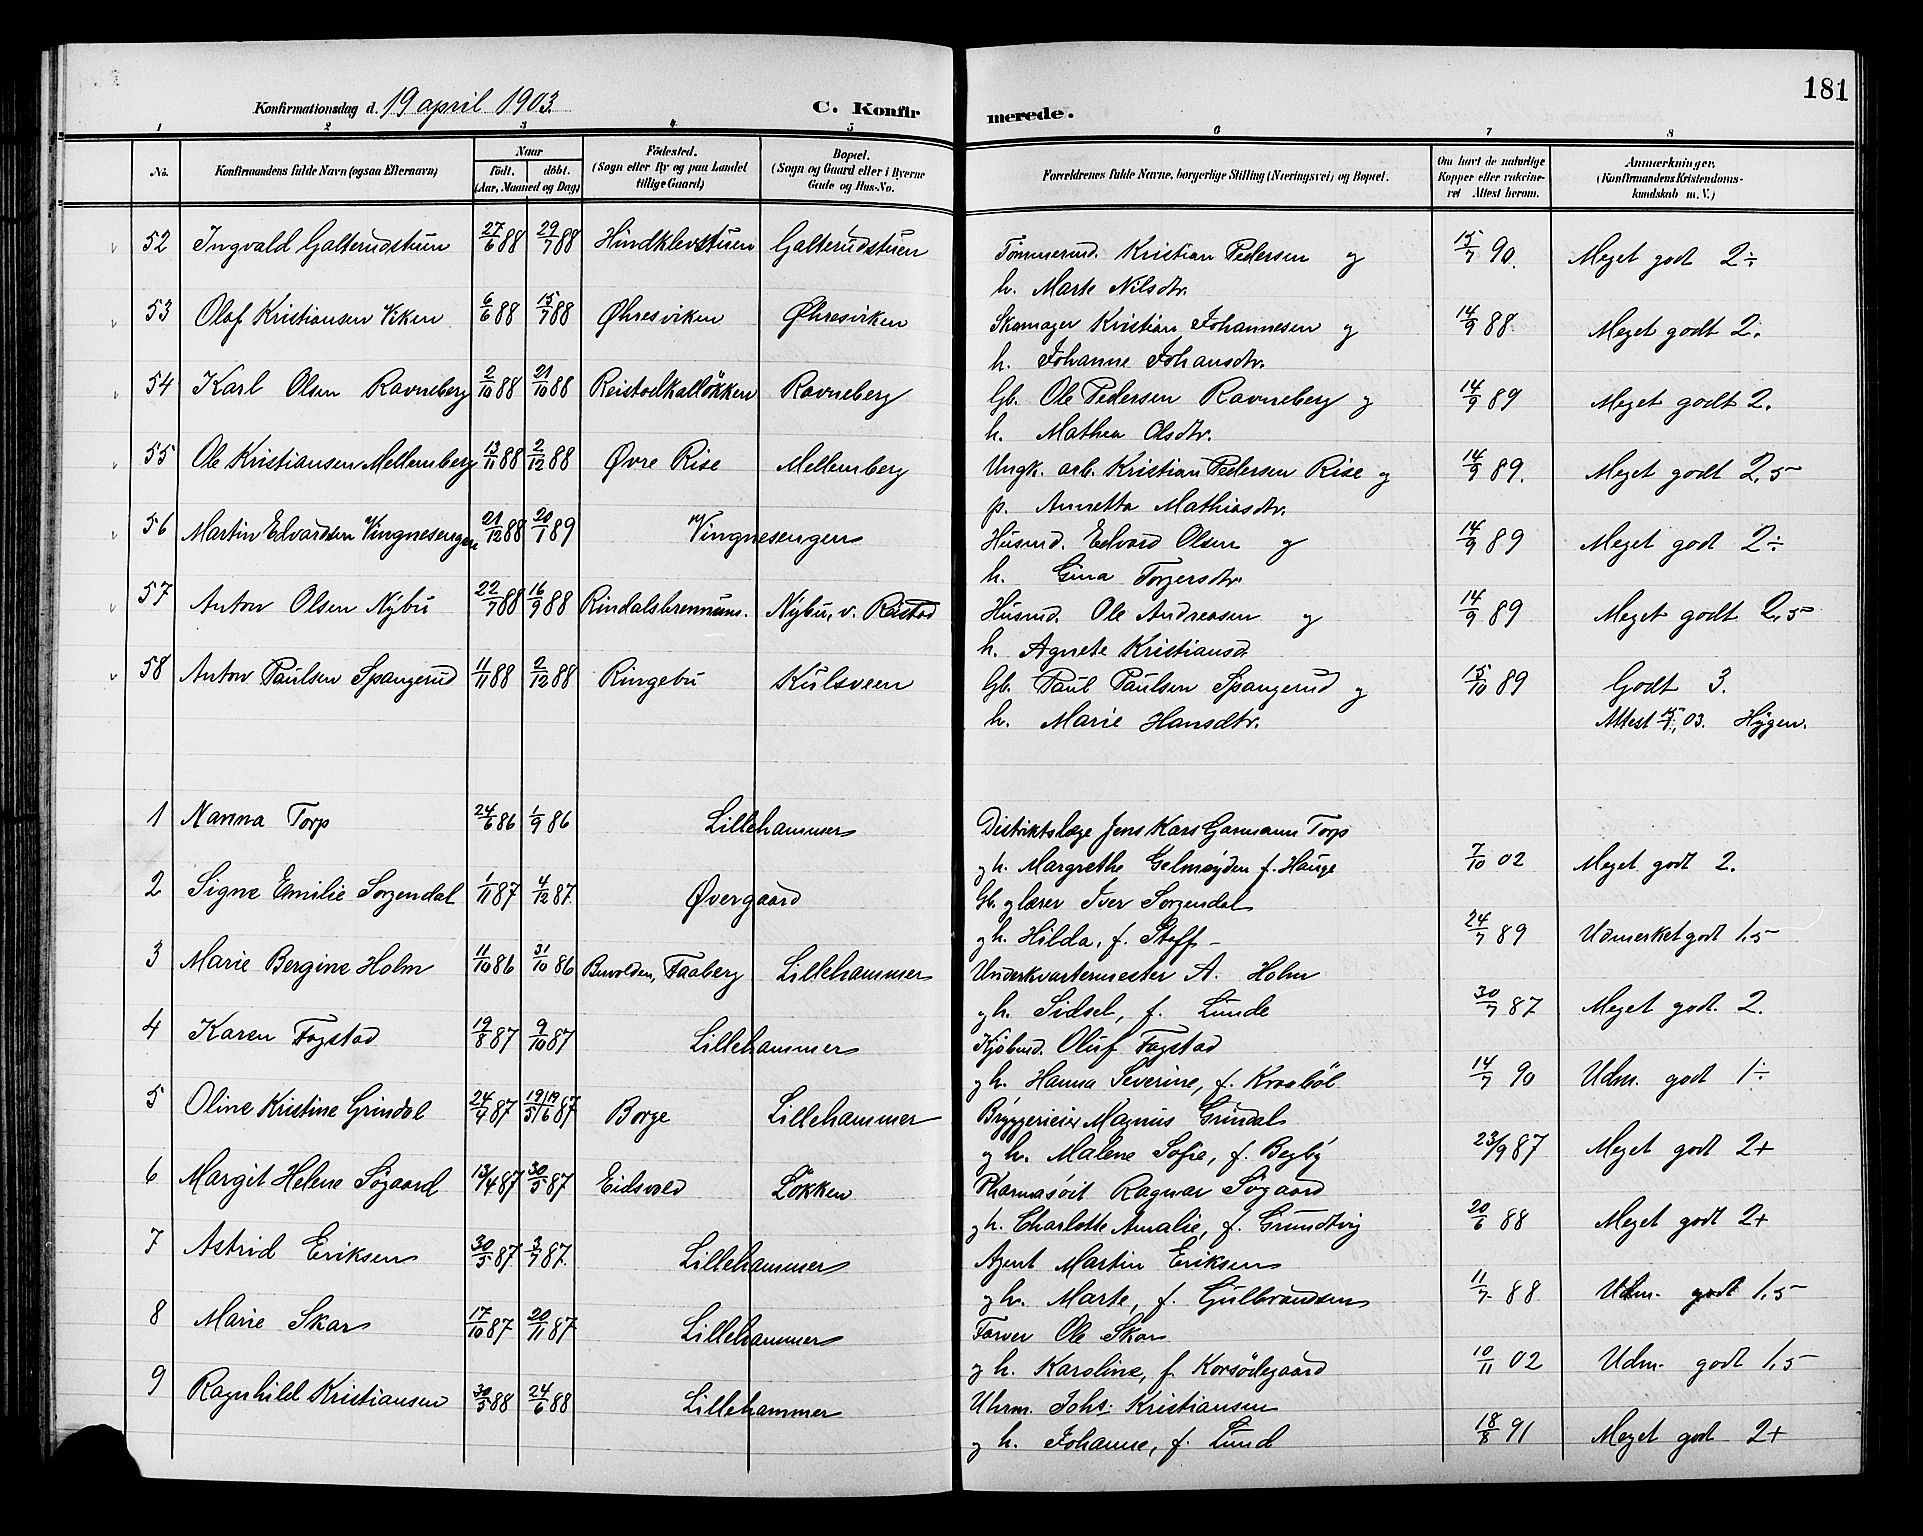 181
Konfirmationsdag d. 19 april 1903.
C. Konfirmerede.
1 2 3 4 5 6 7 8
No. Konfirmandens fulde Navn (ogsaa Efternavn) Naar født. døbt. (Aar, Maaned og Dag) Fødested. (Sogn eller By og paa Landet tillige Gaard) Bopæl. (Sogn og Gaard eller i Byerne Gade og Hus-No. Forældrenes fulde Navne, borgerlige Stilling (Næringsvei) og Bopæl. Om havt de naturlige Kopper eller vaccineret Attest herom. Anmærkninger. (Konfirmandens Kristendomskundskab m. V.)
52 Ingvald Galterudstuen 27/6 88 29/7 88 Hindklevstuen Galterudstuen Tømmermd. Kristian Pedersen og 15/7 90. Meget godt 2÷
h. Marte Nilsdtr.
53 Olaf Kristiansen Viken 6/6 88 15/7 88 Øhresviken Øhresviken Skomager Kristian Johannesen og 14/9 88. Meget godt 2.
h. Johanne Johansdtr.
54 Karl Olsen Ravneberg 2/10 88 21/10 88 Reistadkalløkken Ravneberg Gb. Ole Pedersen Ravneberg og 14/9 89 Meget godt 2.
h. Mathea Olsdtr.
55 Ole Kristiansen Mellemberg 13/11 88 2/12 88 Øvre Rise Mellemberg Ungk. arb. Kristian Pedersen Rise og 14/9 89. Meget godt 2,5
p. Annetta Mathiasdtr.
56 Martin Edvardsen Vingnesengen 21/12 88 20/1 89 Vingnesengen Husmd. Edvard Olsen og 14/9 89 Meget godt 2÷
h. Gina Torgersdtr.
57 Anton Olsen Nybu 22/7 88 16/9 88 Rindalsbrennum. Nybu, v. Reistad Husmd. Ole Andreasen og 14/9 89 Meget godt 2,5
h. Agnete Kristiansd.
58 Anton Paulsen Spangerud 1/11 88 2/12 88 Ringebu Kulsveen Gb. Paul Paulsen Spangerud og 15/10 89 Godt 3.
h. Marie Hansdtr. Attest 03. Hygen.
1 Nanna Torp 24/6 86 1/9 86 Lillehammer Distriktslæge Jens Kars Garmann Torp
og h. Margrethe Gelmøyden f. Hauge 7/10 02 Meget godt 2.
2 Signe Emilie Sorgendal 1/11 87 4/12 87. Øvergaard Gb. og lærer Iver Sorgendal
og h. Hilda, f. Staff- 24/7 89 Udmerket godt 1,5
3 Marie Bergine Holm 11/10 86 31/10 86 Buvolden, Faaberg Lillehammer Underkvartermester A. Holm
og h. Sidsel, f. Lunde 30/7 87 Meget godt. 2.
4 Karen Fagstad 19/8 87 9/10 87 Lillehammer Kjøbmd. Oluf Fagstad
og h. Hanna Severine, f. Kraabøl 14/7 90 Udm. godt 1÷
5 Oline Kristine Grindal 24/4 87 19/5 19/6 87 Borge Lillehammer Bryggerieier Magnus Grindal
og h. Malene Sofie, f. Begby 23/9 87 Meget godt 2+
6 Margit Helene Søgaard 13/4 87 30/5 87 Eidsvold Løkken Pharmasøit Ragnar Søgaard
og h. Charlotte Amalie, f. Grundtvig 20/6 88 Meget godt 2+
7 Astrid Eriksen 30/5 87 3/7 87. Lillehammer Agent Martin Eriksen
og h. Marte, f. Gulbrandsen 11/7 88 Udm. godt 1,5
8 Marie Skar 17/10 87 20/11 87 Lillehammer Farver Ole Skar
og h. Karoline, f. Korsødegaard 10/11 02 Udm. godt 1,5
9 Ragnhild Kristiansen 30/5 88 24/6 88 Lillehammer Uhrm. Johs: Kristiansen
og h. Johanne, f. Lund 18/8 91 Meget godt 2+